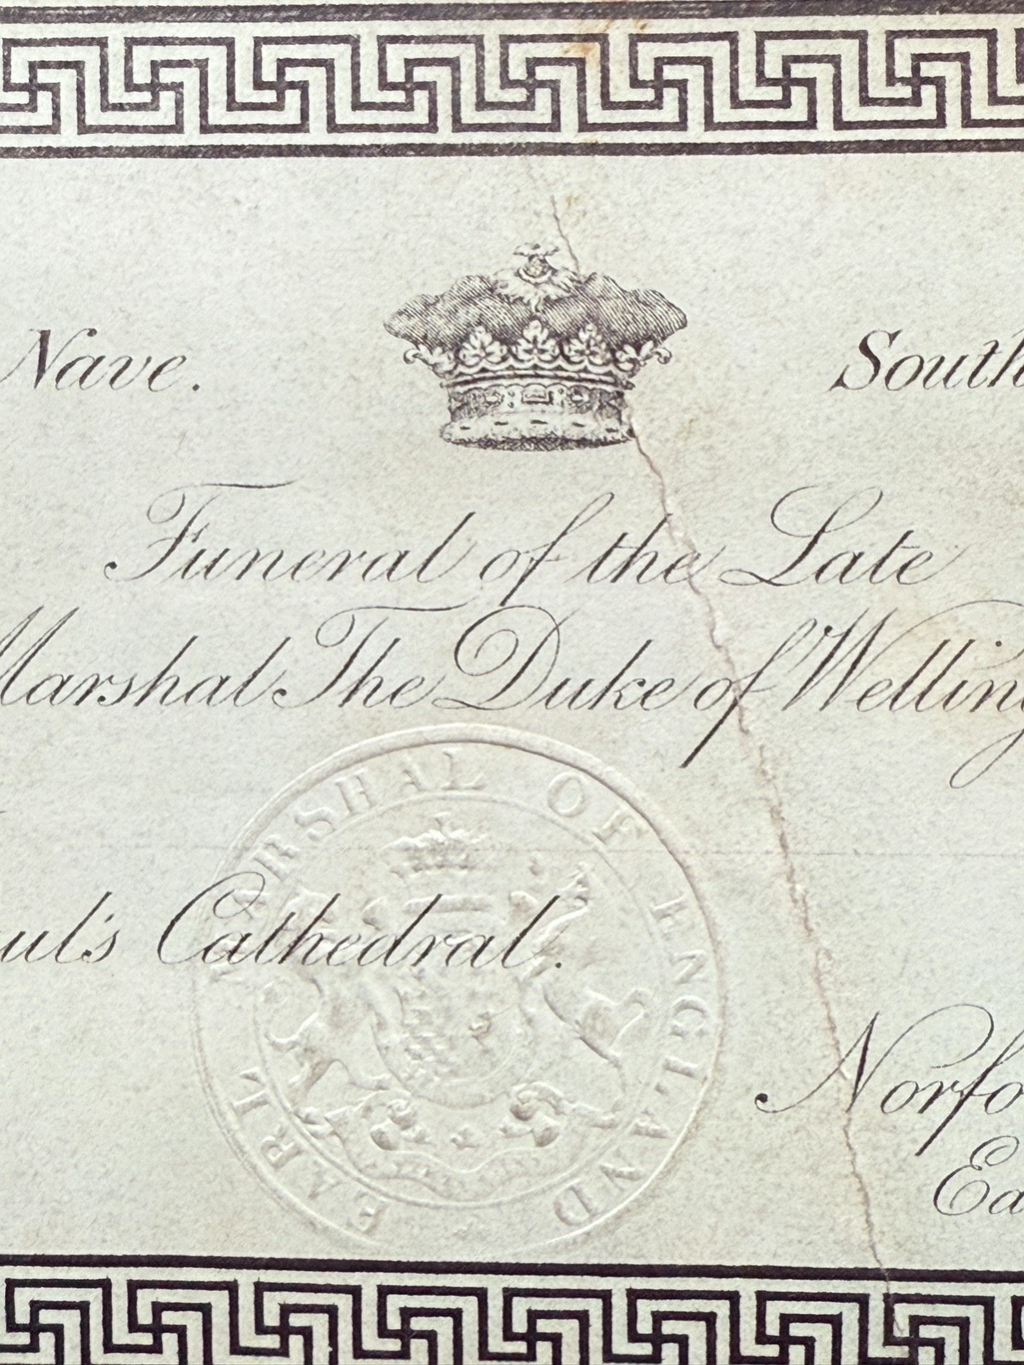 Nave. South
Funeral of the Late
Marshal The Duke of Welling
aul's Cathedral.
Norfo
Ea
EARL MARSHAL OF ENGLAND